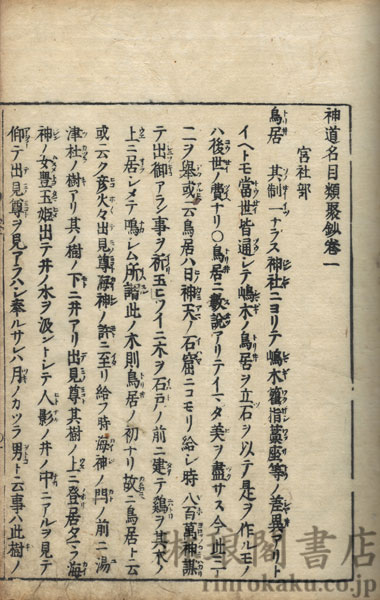 神道名目類聚鈔巻一
宮社部
鳥居 其制一ナラス神社ニヨリテ嶋木 指藁座等ノ差異アリト
イヘトモ當世皆通シテ嶋木ノ鳥居ヲ立石ヲ以テ是ヲ作ルモノ
ハ後世ノ費ナリ○鳥居ニ數説アリテイマタ美ヲ盡サス今此ニ一
二ヲ舉或云鳥居ハ日神天ノ石窟ニコモリ給シ時八百萬神謀
テ出御アラン事ヲ祈玉ヒツイニ木ヲ石戸ノ前ニ建テ鷄ヲ其木ノ
上ニ居シメテ鳴シム所謂此ノ木則鳥居ノ初ナリ故ニ鳥居ト云
或云ク彦火々出見尊海神ノ許ニ至リ給フ時海神ノ門ノ前ニ湯
津杜ノ樹アリ其ノ樹ノ下ニ井アリ出見尊其樹ノ上ニ登居タマフ海
神ノ女豊玉姫出テ井ノ水ヲ汲ントシテ人影ノ井ノ中ニアルヲ見テ
仰テ出見尊ヲ見アラハシ奉ルサレハ月ノカツラ男ト云事ハ此樹ノ
琳琅閣書店
rinrokaku.co.jp